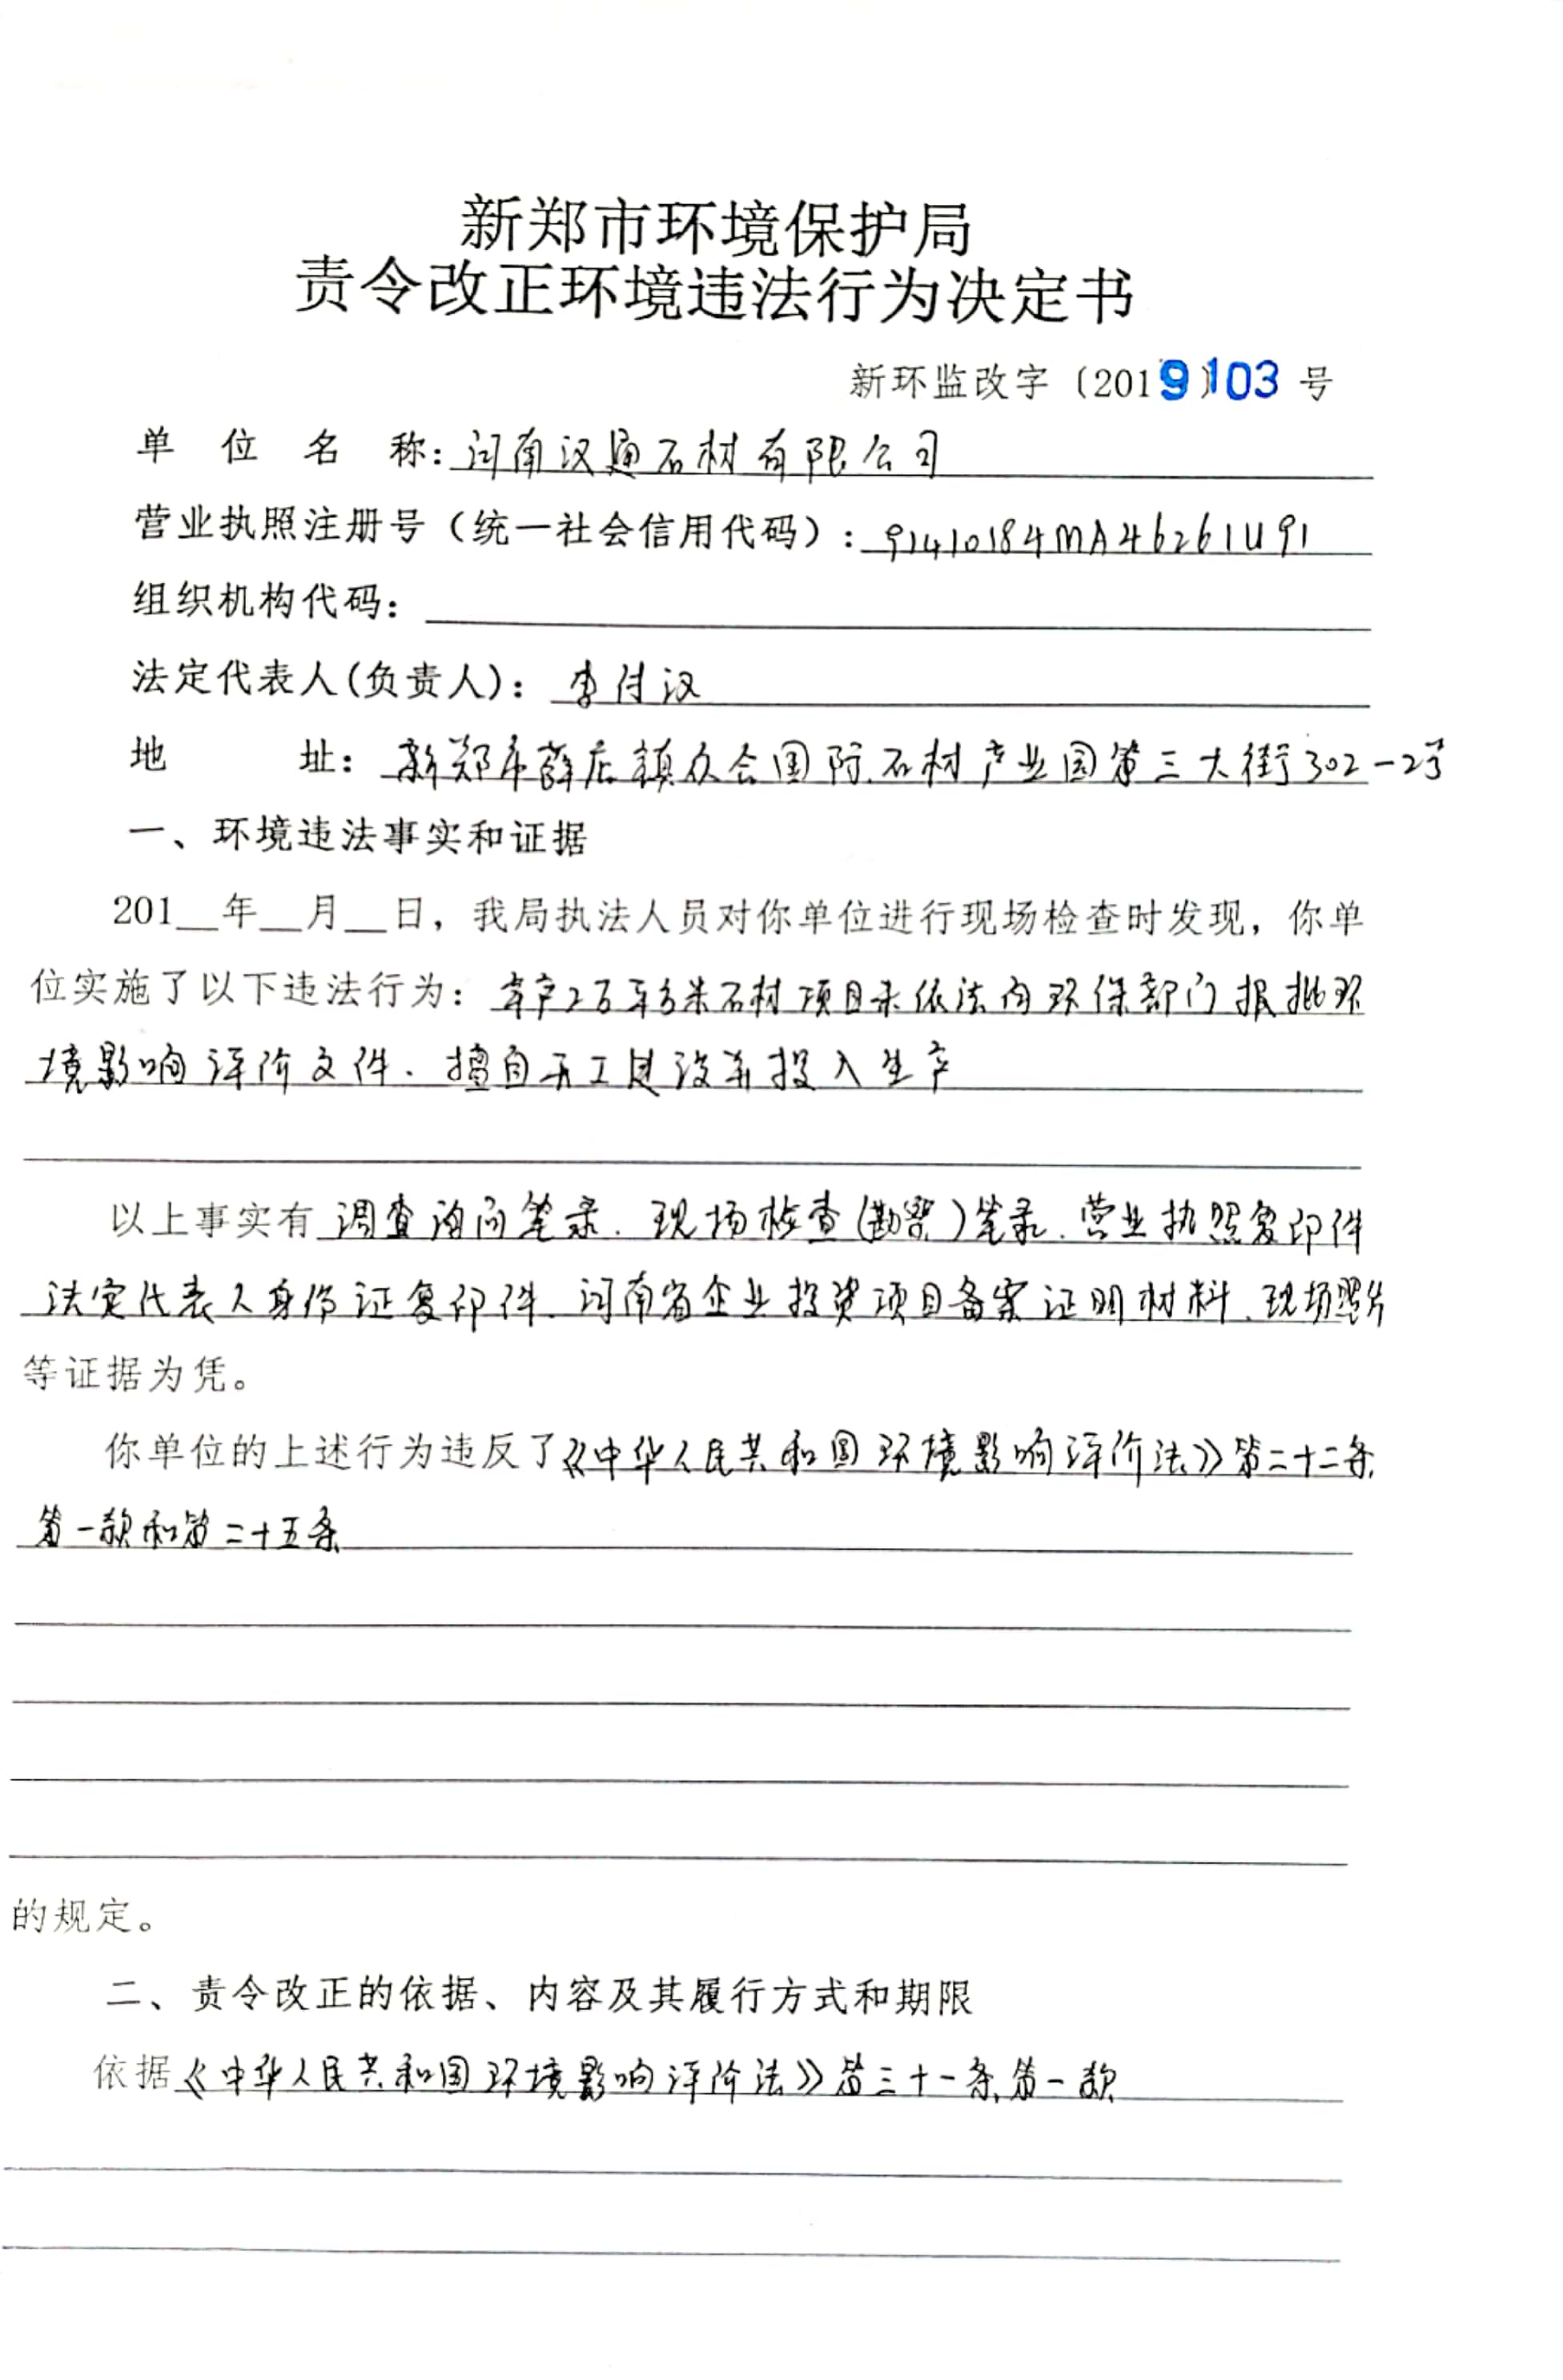 新郑市环境保护局
责令改正环境违法行为决定书
新环监改字〔2019〕103 号
单 位 名 称：河南汉通石材有限公司
营业执照注册号（统一社会信用代码）：91410184MA46261U91
组织机构代码：
法定代表人(负责人)：李付汉
地 址：新郑市薛店镇众合国际石材产业园第三大街302-2号
一、环境违法事实和证据
201__年__月__日，我局执法人员对你单位进行现场检查时发现，你单
位实施了以下违法行为：年产2万平方米石材项目未依法向环保部门报批环
境影响评价文件、擅自开工建设并投入生产
以上事实有 调查询问笔录、现场检查(勘察)笔录、营业执照复印件
法定代表人身份证复印件、河南省企业投资项目备案证明材料、现场照片
等证据为凭。
你单位的上述行为违反了《中华人民共和国环境影响评价法》第二十二条
第一款和第二十五条
的规定。
二、责令改正的依据、内容及其履行方式和期限
依据《中华人民共和国环境影响评价法》第三十一条第一款